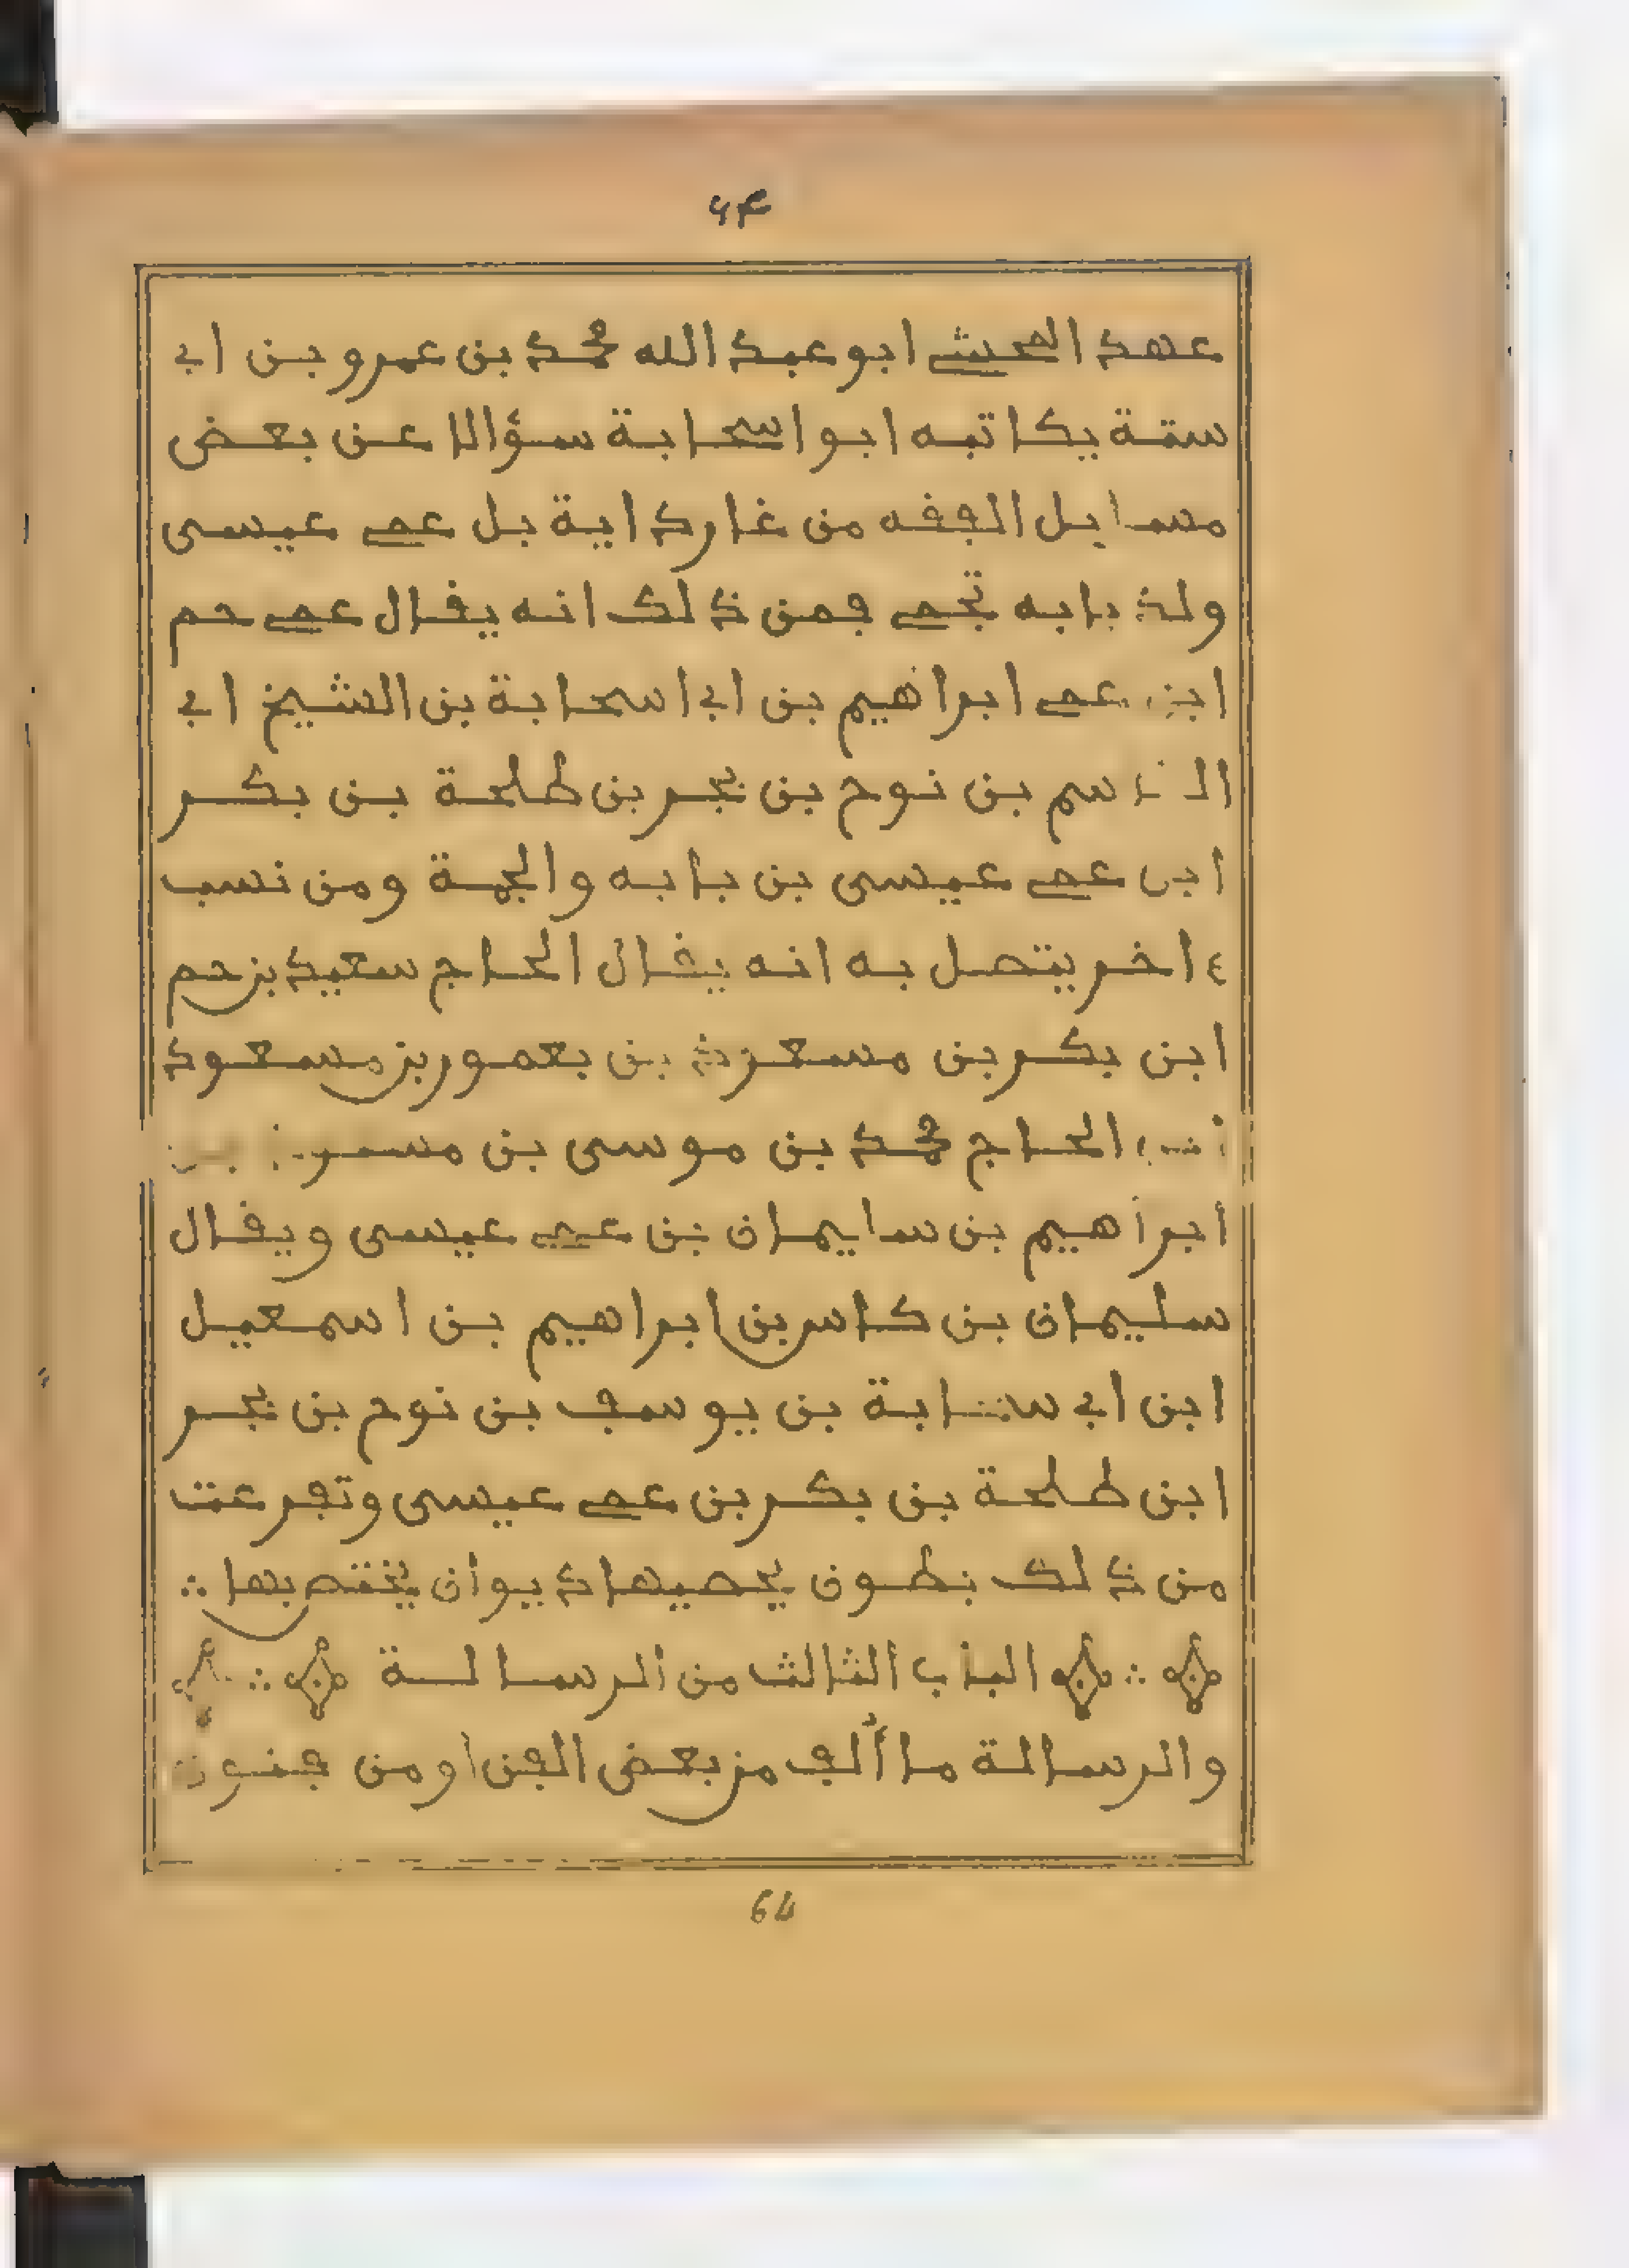 ٦٤
عهد المحشي ابو عبد الله محمد بن عمرو بن ابي
ستة يكاتبه ابو اسحابة سؤالا عن بعض
مسايل الفقه من غارداية بل عمي عيسى
ولد بابه نجمي فمن ذلك انه يقال عمي حم
ابن عمي ابراهيم بن ابي اسحابة بن الشيخ ابي
القاسم بن نوح بن بحر بن طلحة بن بكر
ابن عمي عيسى بن بابه والجمة ومن نسب
ءاخر يتصل به انه يقال الحاج سعيد بن حم
ابن بكر بن مسعود بن يعمور بن مسعود
الحاج محمد بن موسى بن
ابراهيم بن سليمان بن عمي عيسى ويقال
سليمان بن كاسر بن ابراهيم بن اسمعيل
ابن ابي سحابة بن يوسف بن نوح بن بحر
ابن طلحة بن بكر بن عمي عيسى وتفرعت
من ذلك بطون يحصيها ديوان يختص بها
الباب الثالث من الرسالة
والرسالة ما ألف من بعض الفن او من فنون
64